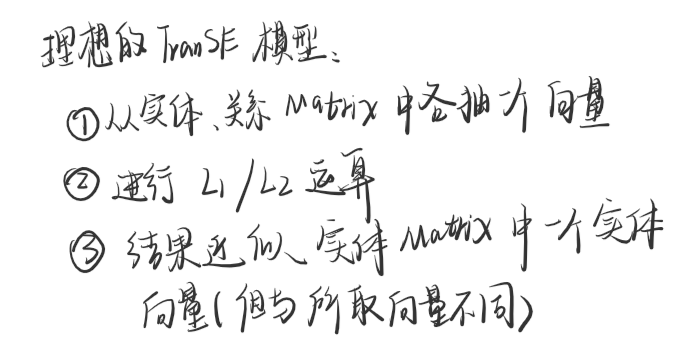 理想的 TransE 模型：
① 从实体、关系 Matrix 中各抽一个向量
② 进行 L1/L2 运算
③ 结果近似 实体 Matrix 中一个实体
向量(但与所取向量不同)